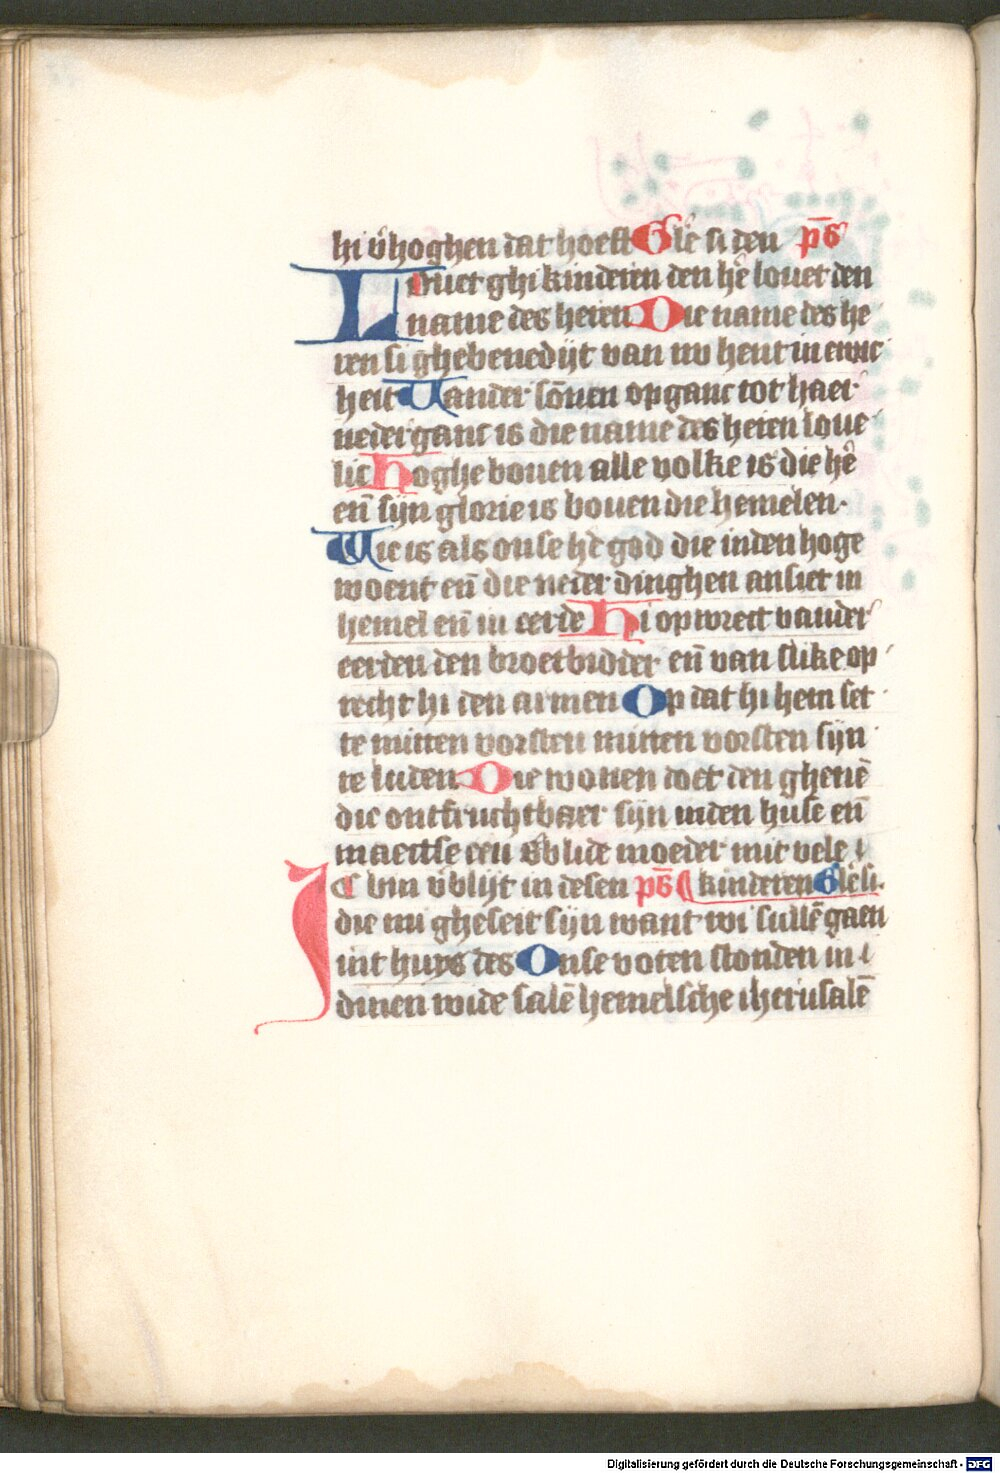 hi v̾hoghen dat hoeft Gl̾e si den ps̄
Louet ghi kinderen den he̾ louet den
name des heren Die name des he
ren si ghebenedijt van nu hent in ewic
heit Vander sōnen opganc tot haer
nederganc is die name des heren loue
lic Hoghe bouen alle volke is die he̾
en̄ sijn glorie is bouen die hemelen.
Wie is als onse he̾ god die inden hoge
woent en̄ die neder dinghen ansiet in
hemel en̄ in eerde Hi opwrect vander
eerden den broetbidder en̄ van slike op
recht hi den armen Op dat hi hem set
te mitten vorsten mitten vorsten sijn
te luden Die wonen doet den ghenē
die ontfruchtbaer sijn inden huse en̄
maectse een v̾blide moeder mit vele
Ic bin v̾blijt in desen ps̄ ¶ kinderen Gl̾e si.
die mi gheseit sijn want wi sullē gaen
int huys des Onse voten stonden in
dinen wide salē hemelsche iherusalē
Digitalisierung gefördert durch die Deutsche Forschungsgemeinschaft - DFG